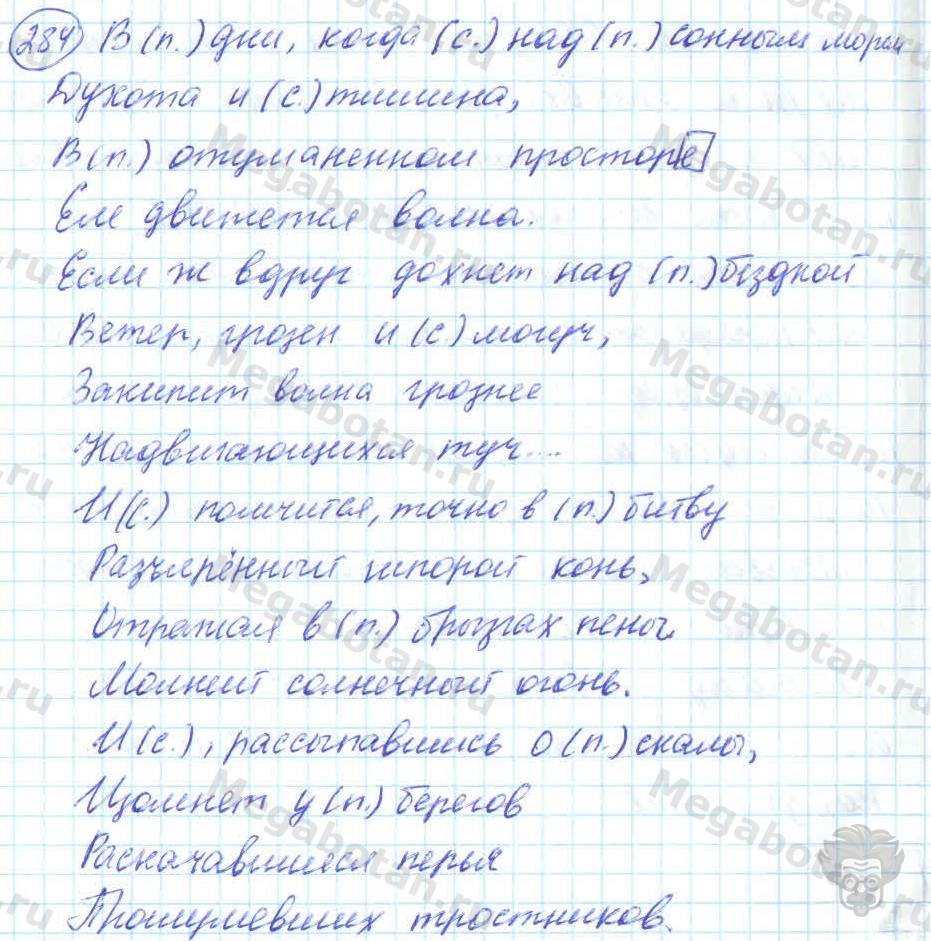 284 В(п.) дни, когда (с.) над (п.) сонным морем
Духота и (с.) тишина,
В(п.) отуманенном просторе
Еле движется волна.
Если ж вдруг дохнет над (п.) бездной
Ветер, грозен и (с.) могуч,
Закипит волна грознее
Надвигающихся туч...
И(с.) помчится, точно в (п.) битву
Разъярённый шпорой конь,
Отражая в (п.) брызгах пены
Молний солнечный огонь.
И(с.), рассыпавшись о (п.) скалы,
Щёлкнет у (п.) берегов
Раскачавшиеся перья
Прошумевших тростников.
Megabotan.ru